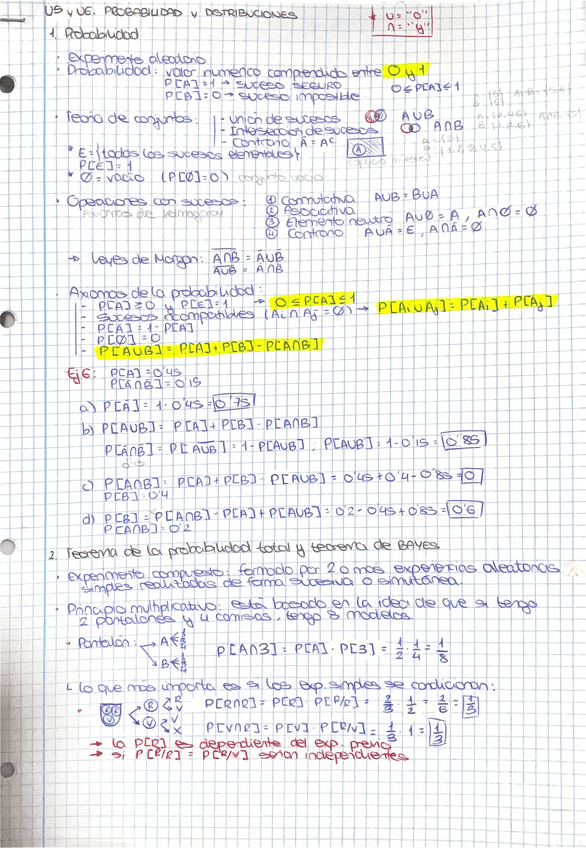 U5 y U6. PROBABILIDAD Y DISTRIBUCIONES
* U = "O"
∩ = "y"
1. Probabilidad
· Experimento aleatorio
· Probabilidad: valor numérico comprendido entre 0 y 1
P[A]=1 → suceso SEGURO 0≤P[A]≤1
P[B]=0 → suceso imposible
· Teoría de conjuntos: |- Unión de sucesos A∪B
|- Intersección de sucesos A∩B
|- Contrario Ā = Aᶜ (A)
* E={todos los sucesos elementales}
P[E]=1
* Ø = vacío (P[Ø]=0) conjunto vacío
· Operaciones con sucesos: ① Conmutativa A∪B = B∪A
② Asociativa
Axiomas de Kolmogorov
③ Elemento neutro A∪Ø = A, A∩Ø = Ø
④ Contrario A∪Ā = E, A∩Ā = Ø
→ Leyes de Morgan: \overline{A∩B} = Ā∪B̄
\overline{A∪B} = Ā∩B̄
· Axiomas de la probabilidad:
|- P[A]≥0 y P[E]=1 → 0≤P[A]≤1
|- Sucesos incompatibles (Ai∩Aj=Ø) → P[Ai∪Aj] = P[Ai] + P[Aj]
|- P[Ā] = 1 - P[A]
|- P[Ø] = 0
- P[A∪B] = P[A] + P[B] - P[A∩B]
Ej 6: P[A] = 0'45
P[Ā∩B̄] = 0'15
a) P[Ā] = 1 - 0'45 = 0'75
b) P[A∪B] = P[A] + P[B] - P[A∩B]
P[Ā∩B̄] = P[\overline{A∪B}] = 1 - P[A∪B]; P[A∪B] = 1 - 0'15 = 0'85
0'15
c) P[A∩B] = P[A] + P[B] - P[A∪B] = 0'45 + 0'4 - 0'85 = 0
P[B] = 0'4
d) P[B] = P[A∩B] - P[A] + P[A∪B] = 0'2 - 0'45 + 0'85 = 0'6
P[A∩B] = 0'2
2. Teorema de la probabilidad total y teorema de BAYES
· Experimento compuesto: formado por 2 o más experiencias aleatorias
simples realizadas de forma sucesiva o simultánea.
· Principio multiplicativo: está basado en la idea de que si tengo
2 pantalones y 4 camisas, tengo 8 modelos.
· Pantalón: A
P[A∩3] = P[A] · P[3] = 1/2 · 1/4 = 1/8
B
↳ Lo que más importa es si los exp. simples se condicionan:
R R V P[R∩R] = P[R] · P[R/R] = 2/3 · 1/2 = 2/6 = 1/3
V V X P[V∩R] = P[V] · P[R/V] = 1/3 · 1 = 1/3
→ la P[R] es dependiente del exp. previo
→ si P[R/R] = P[R/V] serían independientes